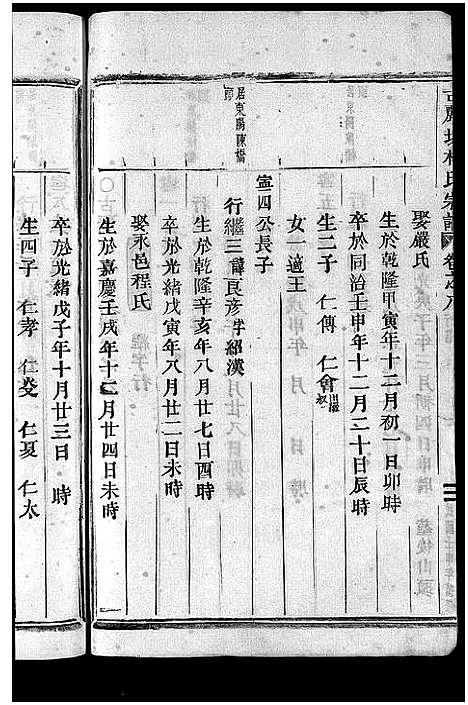 娶嚴氏
生於乾隆甲寅年十二月初一日卯時
卒於同治壬申年十二月二十日辰時
生二子 仁傳 仁會出繼
女一適王
居東陽陳橋頭
寗四公長子
行繼三諱良彥字紹漢
生於乾隆辛亥年八月廿七日酉時
卒於光緒戊寅年八月廿二日未時
娶永邑程氏
生於嘉慶壬戌年十二月廿四日未時
卒於光緒戊子年十月廿三日 時
生四子 仁孝 仁燮 仁夏 仁太